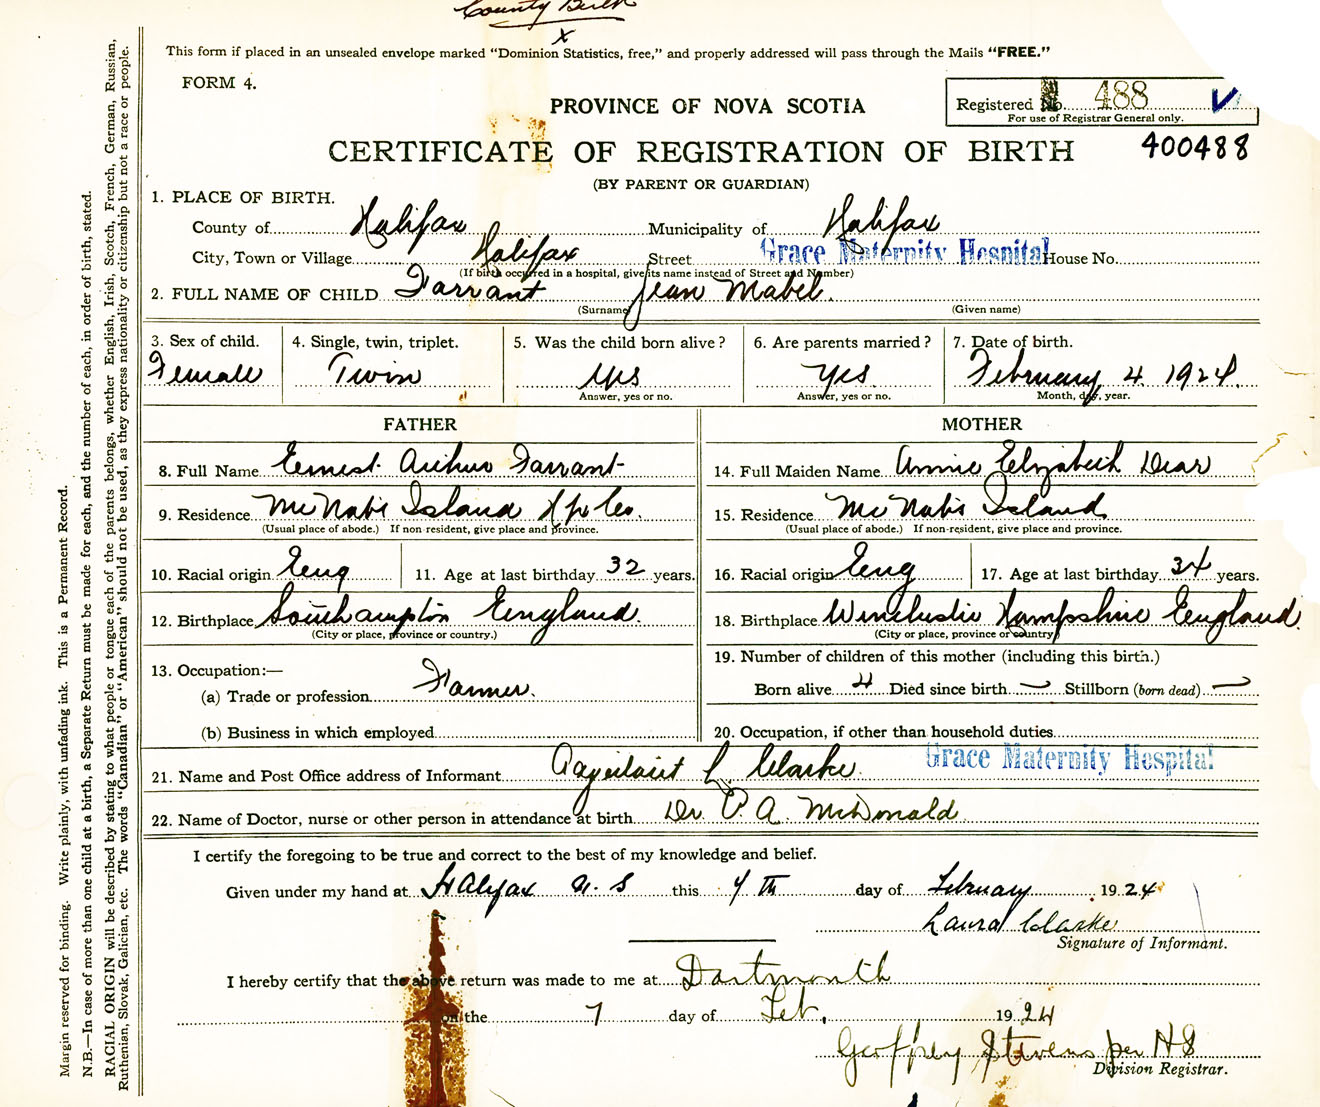 County Birth
x
This form if placed in an unsealed envelope marked "Dominion Statistics, free," and properly addressed will pass through the Mails "FREE."
FORM 4.
Registered No. 488
For use of Registrar General only.
PROVINCE OF NOVA SCOTIA
CERTIFICATE OF REGISTRATION OF BIRTH 400488
(BY PARENT OR GUARDIAN)
1. PLACE OF BIRTH.
County of Halifax Municipality of Halifax
City, Town or Village Halifax Street Grace Maternity Hospital House No.
(If birth occurred in a hospital, give its name instead of Street and Number)
2. FULL NAME OF CHILD Farrant Jean Mabel.
(Surname) (Given name)
3. Sex of child. 4. Single, twin, triplet. 5. Was the child born alive? 6. Are parents married? 7. Date of birth.
Female Twin yes yes February 4 1924.
Answer, yes or no. Answer, yes or no. Month, day, year.
FATHER MOTHER
8. Full Name Ernest Arthur Farrant 14. Full Maiden Name Annie Elizabeth Dear
9. Residence McNabs Island Hfx Co. 15. Residence McNabs Island
(Usual place of abode.) If non-resident, give place and province. (Usual place of abode.) If non-resident, give place and province.
10. Racial origin Eng 11. Age at last birthday 32 years. 16. Racial origin Eng 17. Age at last birthday 34 years.
12. Birthplace Southampton England. 18. Birthplace Winchester Hampshire England.
(City or place, province or country.) (City or place, province or country)
13. Occupation:— 19. Number of children of this mother (including this birth.)
(a) Trade or profession Farmer. Born alive 4 Died since birth — Stillborn (born dead) —
(b) Business in which employed 20. Occupation, if other than household duties
21. Name and Post Office address of Informant L. Clarke. Grace Maternity Hospital
22. Name of Doctor, nurse or other person in attendance at birth Dr. P. A. McDonald
I certify the foregoing to be true and correct to the best of my knowledge and belief.
Given under my hand at Halifax N.S this 7th day of February 1924
Laura Clarke
Signature of Informant.
I hereby certify that the above return was made to me at Dartmouth
on the 7 day of Feb, 1924
Geoffrey Stevens per HS
Division Registrar.
Margin reserved for binding. Write plainly, with unfading ink. This is a Permanent Record.
N.B.—In case of more than one child at a birth, a Separate Return must be made for each, and the number of each, in order of birth, stated.
RACIAL ORIGIN will be described by stating to what people or tongue each of the parents belongs, whether English, Irish, Scotch, French, German, Russian,
Ruthenian, Slovak, Galician, etc. The words "Canadian" or "American" should not be used, as they express nationality or citizenship but not a race or people.